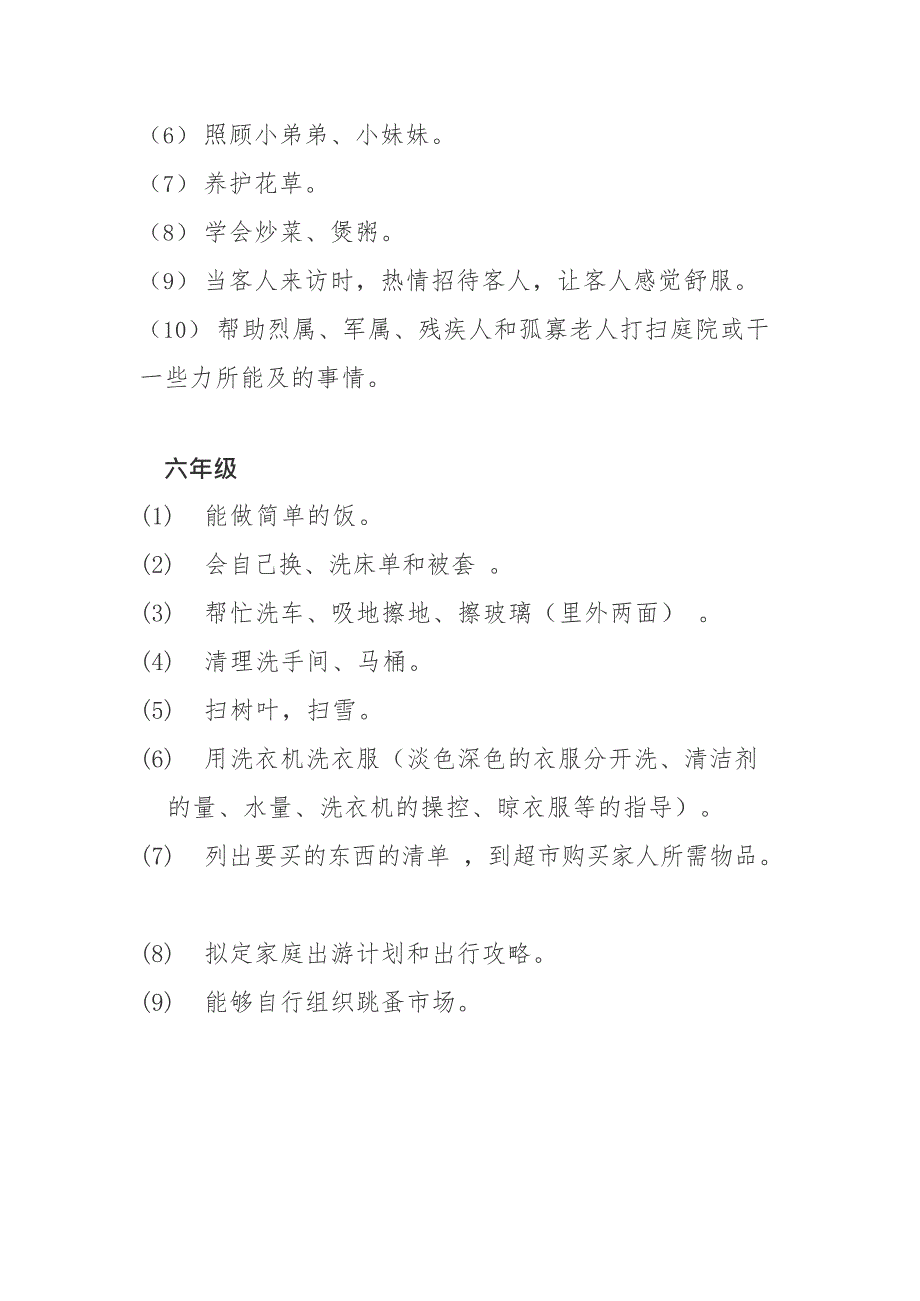 （6） 照顾小弟弟、小妹妹。
（7） 养护花草。
（8） 学会炒菜、煲粥。
（9） 当客人来访时，热情招待客人，让客人感觉舒服。
（10） 帮助烈属、军属、残疾人和孤寡老人打扫庭院或干
一些力所能及的事情。
六年级
(1) 能做简单的饭。
(2) 会自己换、洗床单和被套 。
(3) 帮忙洗车、吸地擦地、擦玻璃（里外两面） 。
(4) 清理洗手间、马桶。
(5) 扫树叶，扫雪。
(6) 用洗衣机洗衣服（淡色深色的衣服分开洗、清洁剂
的量、水量、洗衣机的操控、晾衣服等的指导）。
(7) 列出要买的东西的清单 ，到超市购买家人所需物品。
(8) 拟定家庭出游计划和出行攻略。
(9) 能够自行组织跳蚤市场。